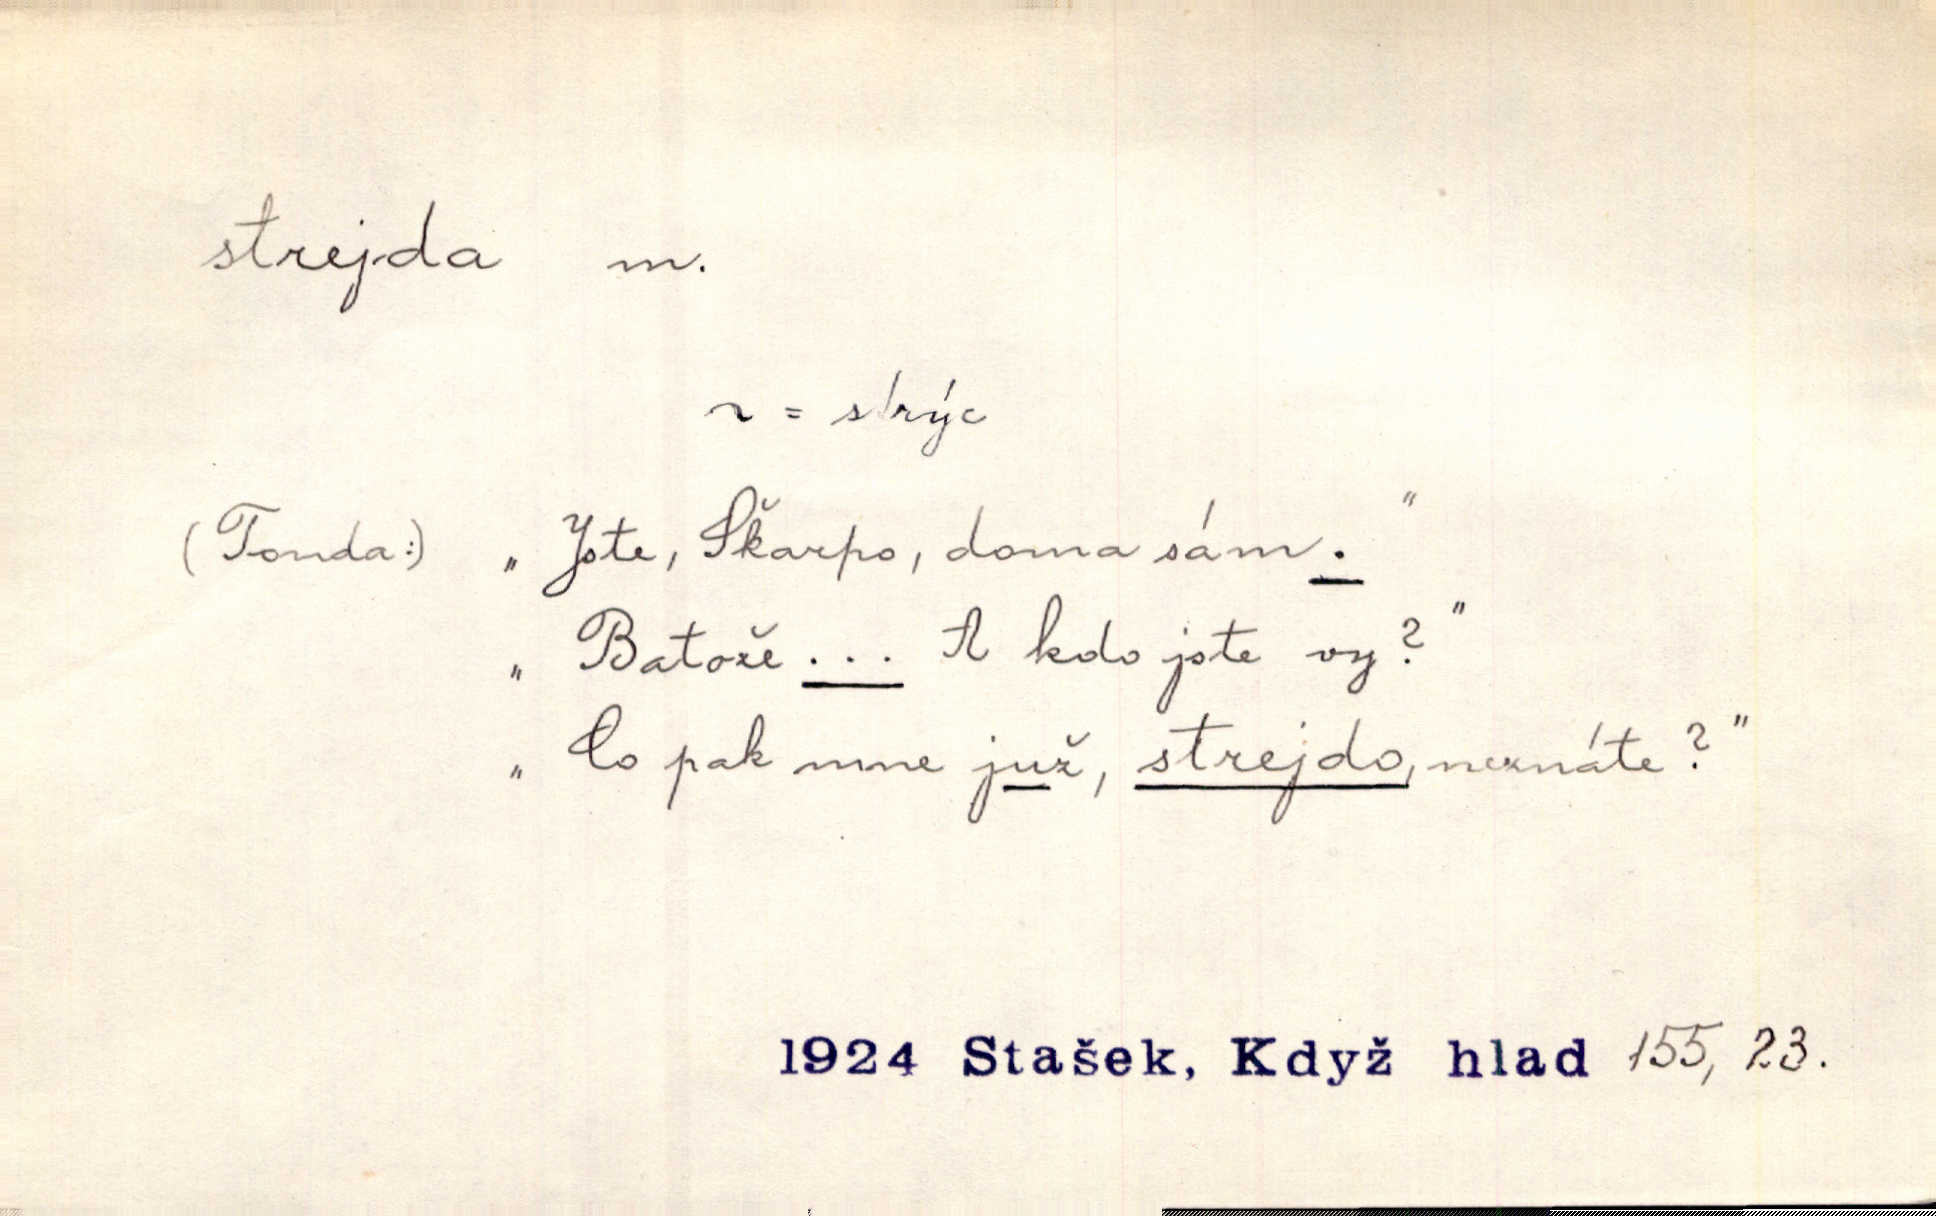 strejda m.
~ = strýc
(Tonda:) „Jste, Škarpo, doma sám."
„Batože... A kdo jste vy?"
„Co pak mne již, strejdo, neznáte?"
1924 Stašek, Když hlad 155, 23.